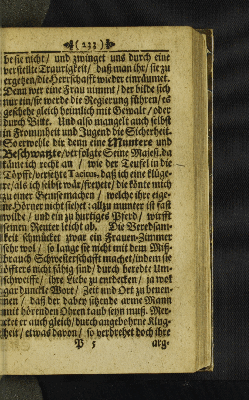 (233)
be sie nicht / und zwinget uns durch eine
verstellte Traurigkeit / daß man ihr / sie zu
ergetzen / die Herrschafft wieder einräumet.
Denn wer eine Frau nimmt / der bilde sich
nur ein / sie werde die Regierung führen / es
geschehe gleich heimlich mit Gewalt / oder
durch Bitte. Und also mangelt auch selbst
in Frommheit und Jugend die Sicherheit.
So erwehle dir denn eine Muntere und
Beschwatzte / verfolgte Seine Majest. da
käme ich recht an / wie der Teufel in die
Töpffe / versetzte Tacitus, daß ich eine klüge-
re / als ich selbst wär / freyete / die könte mich
zu einer Gemse machen / welche ihre eige-
ne Hörner nicht siehet: allzu munter ist fast
wilde / und ein zu hurtiges Pferd / wirfft
seinen Reuter leicht ab. Die Beredsam-
keit schmücket zwar ein Frauen-Zimmer
sehr wol / so lange sie nicht mit dem Miß-
brauch Schwesterschafft machet / indem sie
öffters nicht fähig sind / durch beredte Um-
schweiffe / ihre Liebe zu entdecken / ja wol
gar dunckle Wort / Zeit und Ort zu benen-
nen / daß der dabey sitzende arme Mann
mit hörenden Ohren taub seyn muß. Mer-
cket er auch gleich / durch angebohrne Klug-
heit / etwas davon / so verdrehet doch ihre
P 5 arg-